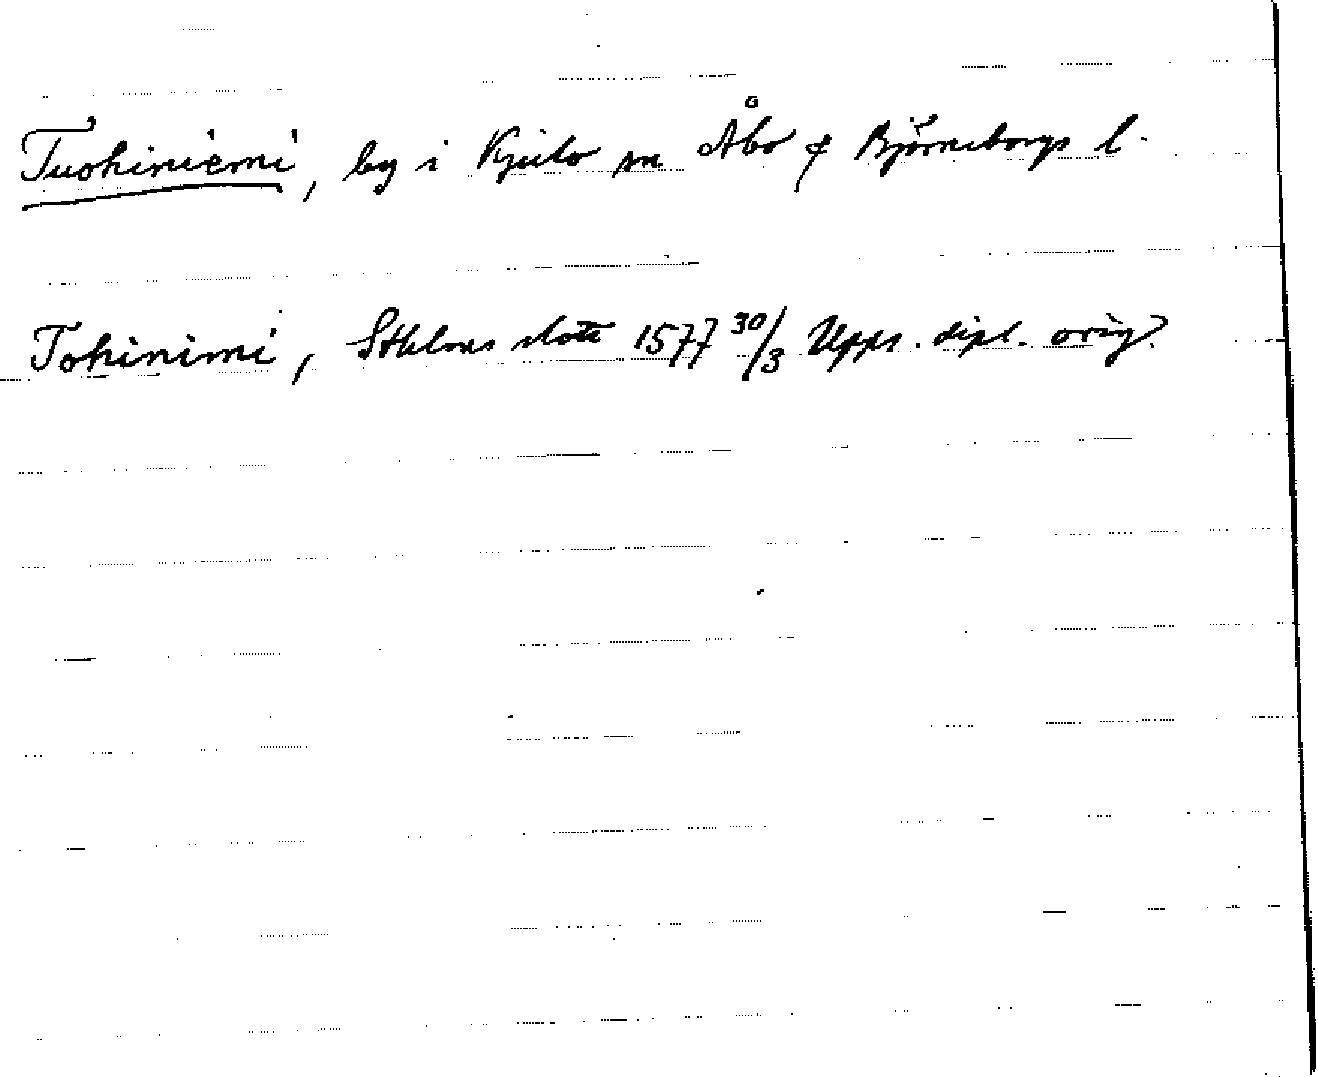 Tuohiniemi, by i Kjulo sn Åbo & Björneborgs l.
Tohinimi, Sthlms slott 1577 30/3 Upps. dipl. orig.